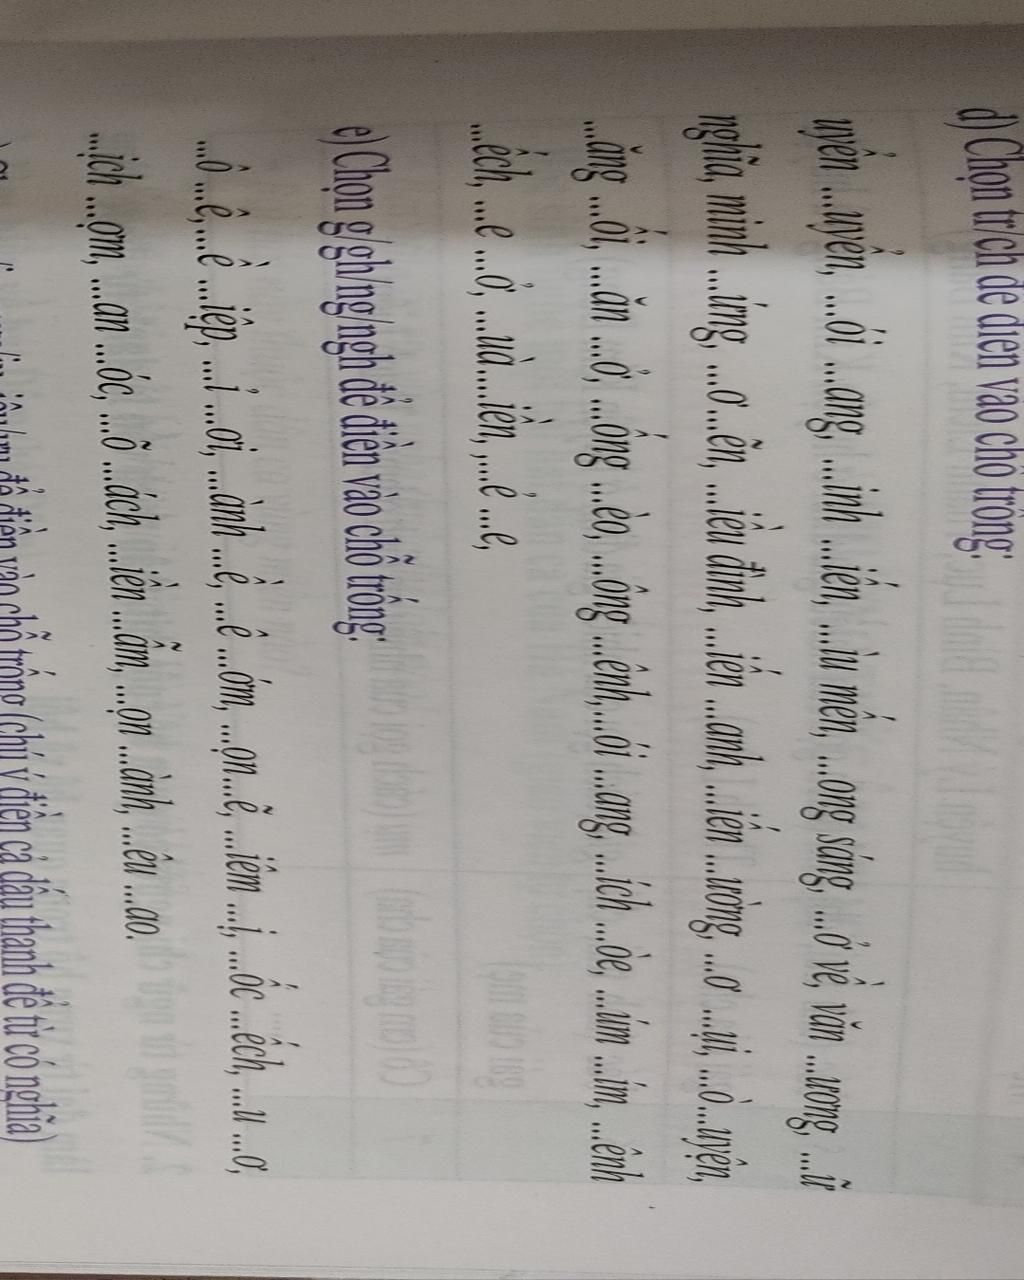 d) Chọn tr/ch để điền vào chỗ trống:
uyển ...uyển, ...ói ...ang, ...inh ...iến, ...ìu mến, ...ong sáng, ...ở về, văn ...ương, ...ữ
nghĩa, minh ...ứng, ...ơ...ẽn, ...iều đình, ...iến ...anh, ...iến...ường, ...ơ ...ụi, ...ò...uyện,
...ăng ...ối, ...ăn ...ở, ...ống ...èo, ...ông ...ênh,...ói ...ang, ...ích ...òe, ...úm ...ím, ...ênh
...ếch, ...e ...ở, ...uà....iền,,...ẻ ...e,
e) Chọn g/gh/ng/ngh để điền vào chỗ trống:
...ô ...ê,...ề ...iệp, ...ỉ ...ơi, ...ành ...ề, ...ê ...ớm, ...ọn...ẽ, ...iêm ...ị, ...ốc ...ếch, ...u ...ơ,
...ịch ...ợm, ...an ...óc, ...õ ...ách, ...iền ...ẫm, ...ọn ...ành, ...êu ...ao.
để điền vào chỗ trống (chú ý điền cả dấu thanh để từ có nghĩa)